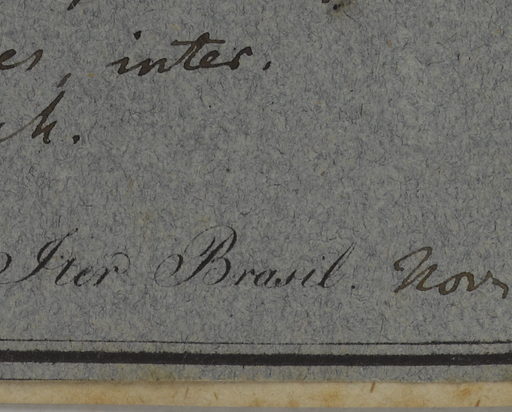 es, inter.
h.
Iter Brasil. Nov